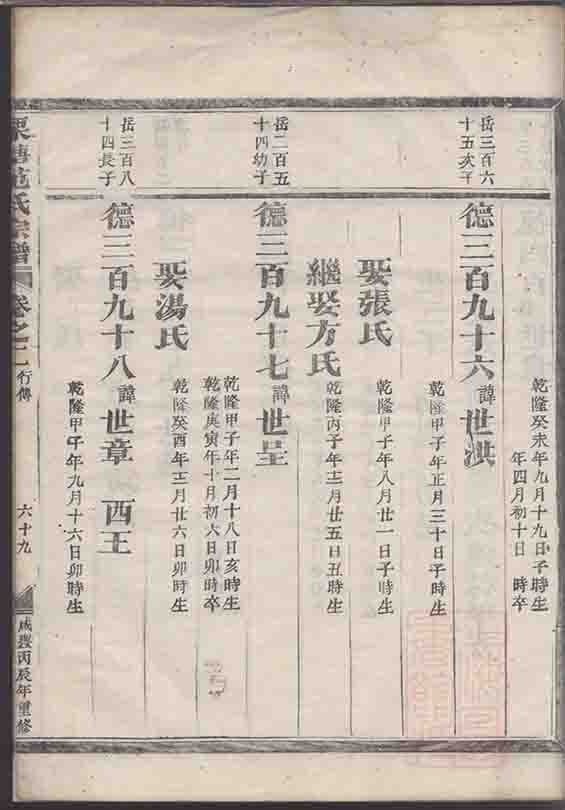 乾隆癸未年九月十九日子時生
年四月初十日 時卒
岳三百六
十五次子
德三百九十六諱世洪
乾隆甲子年正月三十日子時生
娶張氏
乾隆甲子年八月廿一日子時生
繼娶方氏
乾隆丙子年十二月廿五日丑時生
岳二百五
十四幼子
德三百九十七諱世呈
乾隆甲子年二月十八日亥時生
乾隆庚寅年十月初六日卯時卒
娶湯氏
乾隆癸酉年十二月廿六日卯時生
岳三百八
十四長子
德三百九十八諱世章 西王
乾隆甲子年九月十六日卯時生
范氏宗譜
卷之二 行傳
六十九
咸豐丙辰年重修